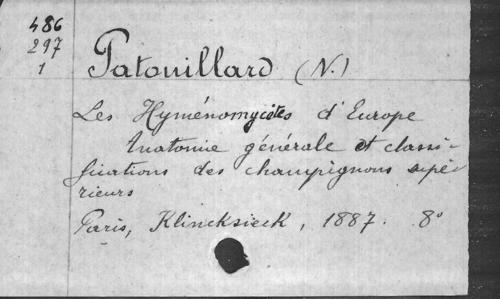 486
297
1
Patouillard (N.)
Les Hyménomycètes d'Europe
Anatomie générale et classi-
fications des champignons supé-
rieurs
Paris, Klincksieck, 1887. 8°